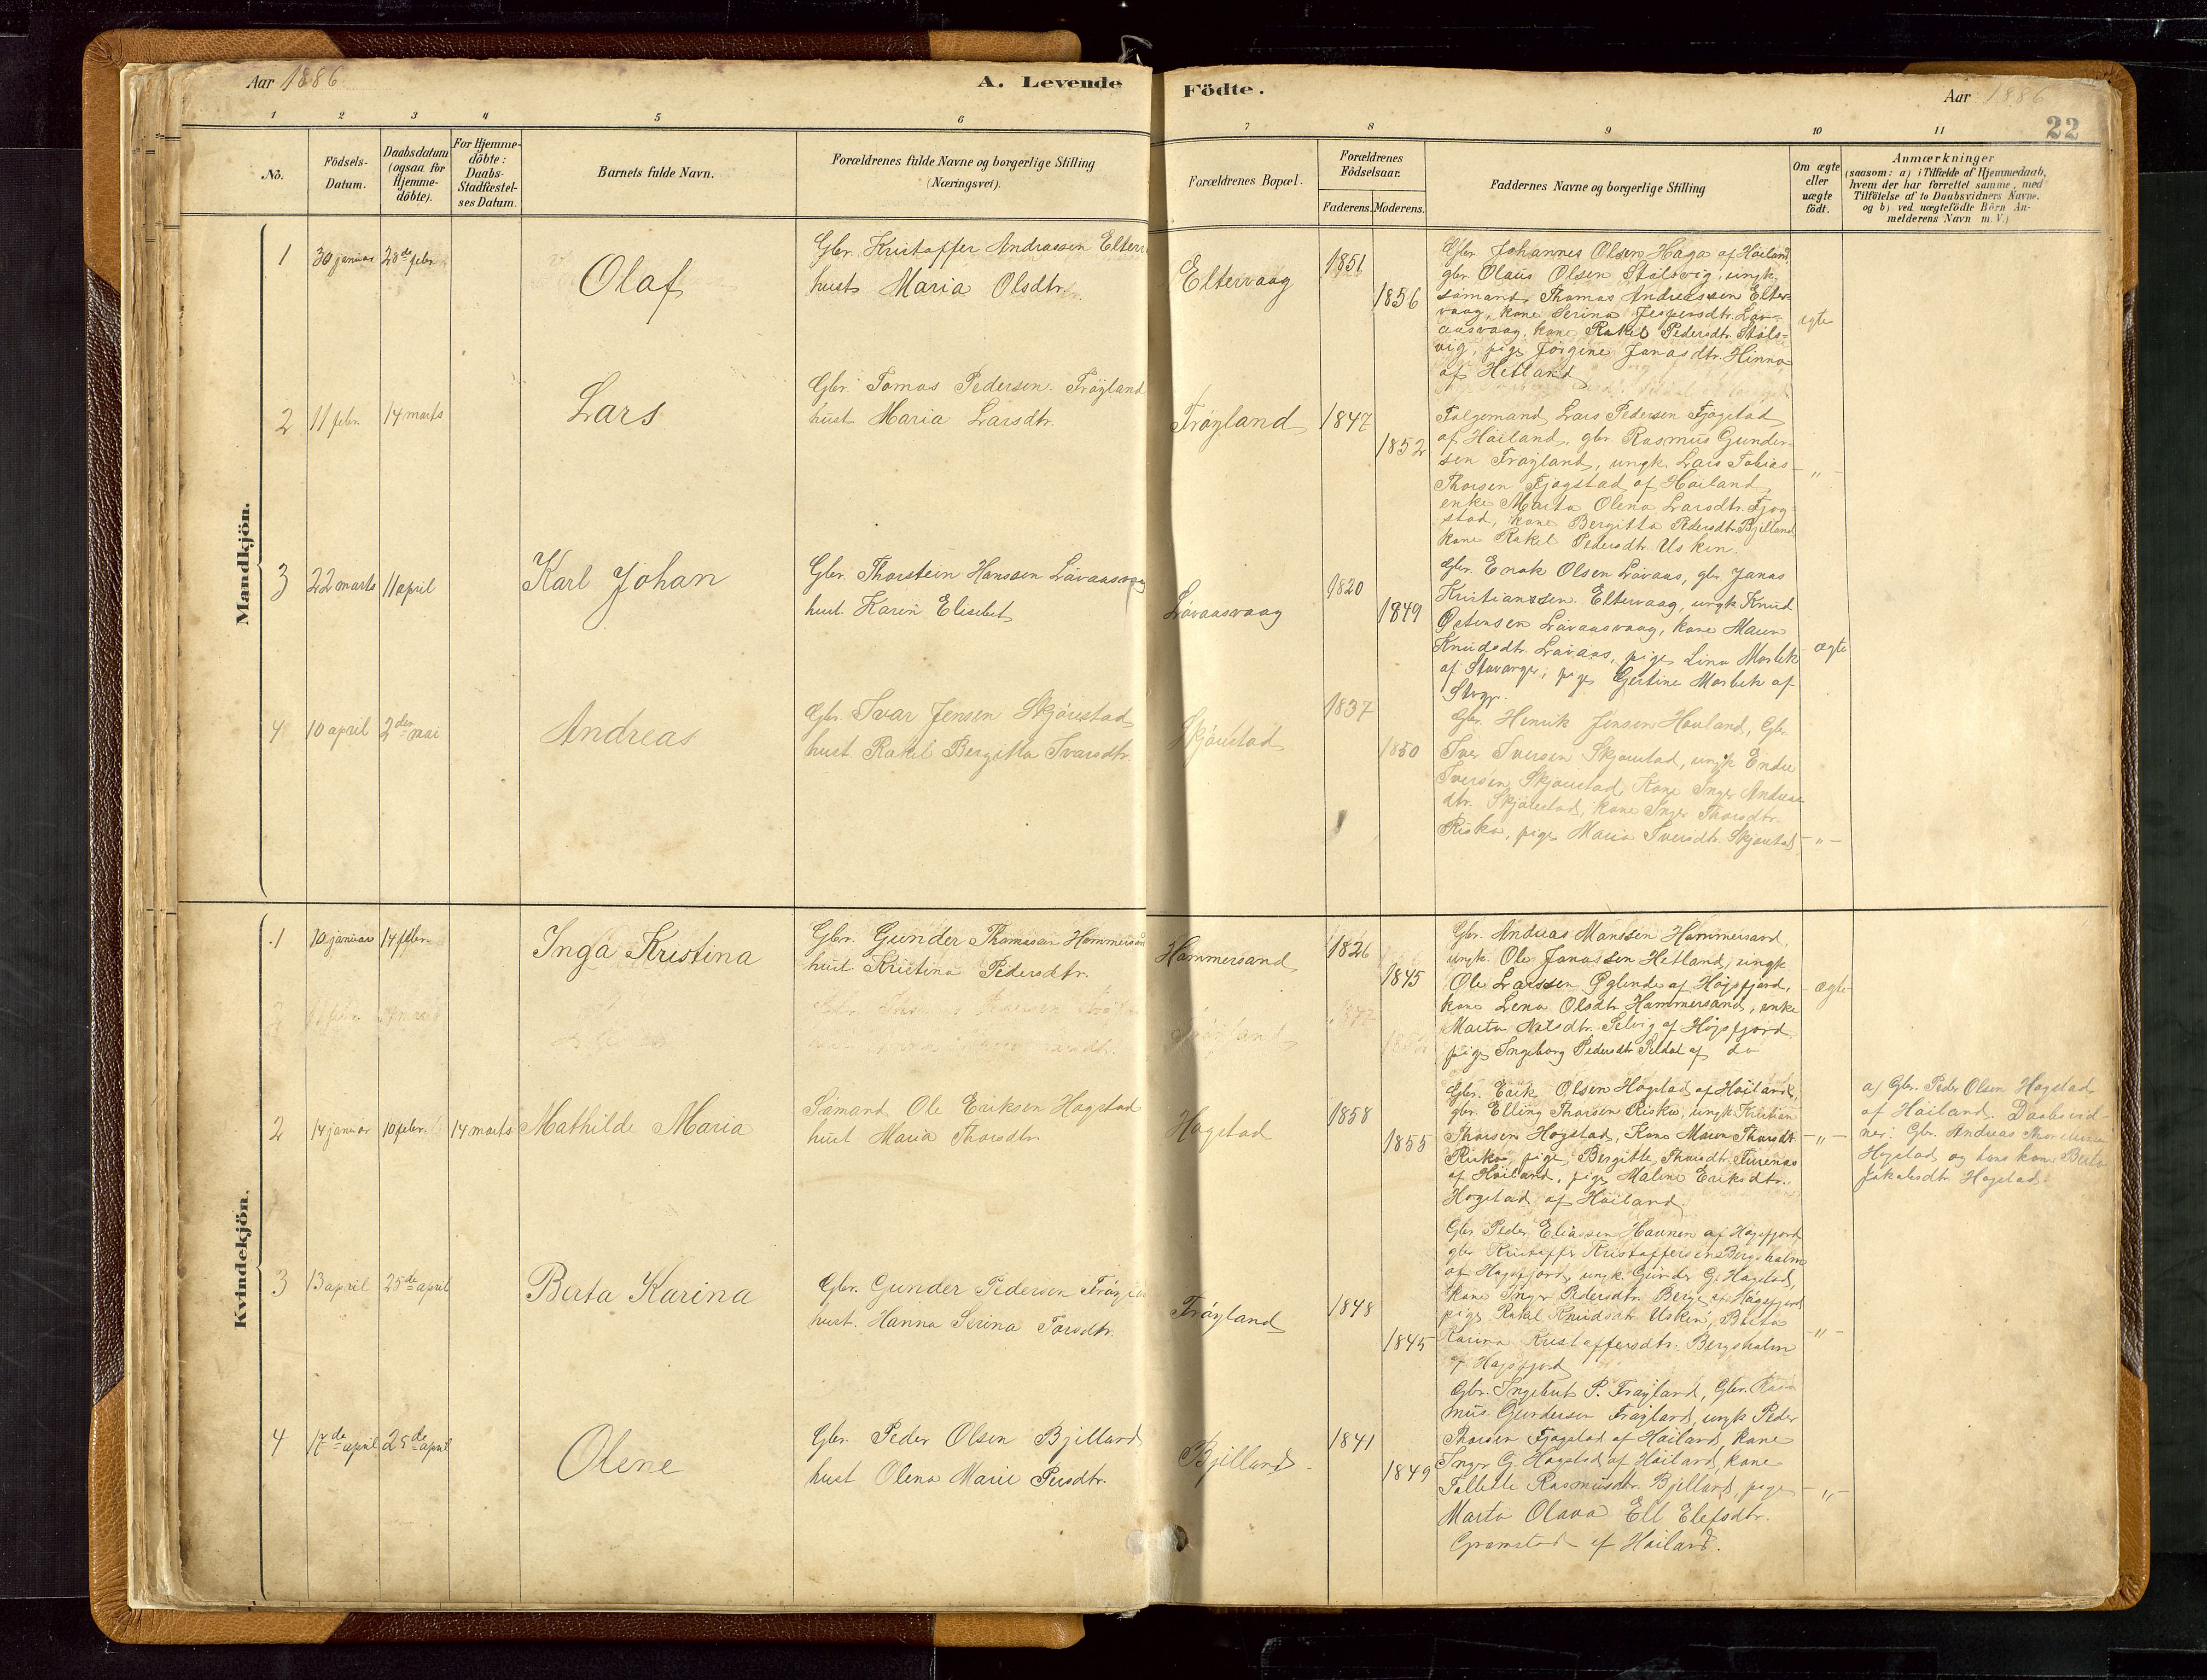 Aar 1886
A. Levende Födte.
Aar 1886
22
1 2 3 4 5 6 7 8 9 10 11
No.
Födsels-Datum.
Daabsdatum (ogsaa for Hjemme-döbte).
For Hjemme-döbte: Daabs-Stadfæstel-ses Datum.
Barnets fulde Navn.
Forældrenes fulde Navne og borgerlige Stilling (Næringsvei).
Forældrenes Bopæl.
Forældrenes Födselsaar.
Faderens. Moderens.
Faddernes Navne og borgerlige Stilling
Om ægte eller uægte födt.
Anmærkninger
(saasom: a) i Tilfælde af Hjemmedaab,
hvem der har forrettet samme, med
Tilföielse af to Daabsvidners Navne,
og b) ved uægtefödte Börn An-
melderens Navn m. V.)
Mandkjön.
1 30 januar 28de febr. Olaf
Gbr. Kristoffer Andreassen
hust. Maria Olsdtr.
Eltervaag 1851 1856
Gbr. Johannes Olsen Haga af Höiland,
gbr. Olaus Olsen Stölsvig, ungk.
sömand Thomas Andreassen Elter-
vaag, kone Serina Jespersdtr. Löv-
aasvaag, kone Rakel Pedersdtr. Stöls-
vig, pige Jörgine Jonasdtr. Hinna
af Hetland
ægte
2 11 febr. 14 marts Lars
Gbr. Tomas Pedersen Fröyland
hust. Maria Larsdtr.
Fröyland 1847 1852
Lars Pedersen Fjogstad
af Höiland, gbr. Rasmus Gunder-
sen Fröyland, ungk. Lars Tobias
Thorsen Fjogstad af Höiland
enke Marta Olena Larsdtr. Fjog-
stad, kone Bergitta Pedersdtr. Bjelland
kone Rakel Pedersdtr. Usken.
-"-
3 22 marts 11 april Karl Johan
Gbr. Thorstein Hanssen Lövaasvaag
hust. Karen Elisebet
Lövaasvaag 1820 1849
Gbr. Enok Olsen Lövaas, gbr. Jonas
Kristianssen Eltervaag, ungk. Knud
Østensen Lövaasvaag, kone Maren
Knudsdtr. Lövaas, pige Lina
af Stavanger, pige Gertine af
Stvgr.
ægte
4 10 april 2den mai Andreas
Gbr. Ivar Jensen Skjörestad
hust. Rakel Bergitta Ivarsdtr.
Skjörestad 1837 1850
Gbr. Henrik Jensen Hovland, Gbr.
Iver Iversen Skjörestad, ungk Endre
Iversen Skjörestad, Kone Inger Andreas-
dtr. Skjörestad, kone Inger Thorsdtr.
Riska, pige Maria Iversdtr. Skjörestad
-"-
Kvindekjön.
1 10 januar 14 febr. Inga Kristina
Gbr. Gunder Thomassen Hammersand
hust. Kristina Pedersdtr.
Hammersand 1826 1845
Gbr. Andreas Monssen Hammersand,
ungk. Ole Jonassen Hetland, ungk
Ole Larssen Øglende af Högsfjord,
kone Lena Olsdtr. Hammersand, enke
Marta Selvig af Högsfjord
pige Ingeborg Pedersdtr. af do
ægte
2 14 januar 10 febr. 14 marts Mathilde Maria
Sömand Ole Eriksen Hogstad
hust Maria Thorsdtr
Hogstad 1858 1855
Gbr. Erik Olsen Hogstad af Höiland,
gbr. Elling Thorsen Riska, ungk Kristian
Thorsen Hogstad, Kone Maren Thorsdtr.
Riska, pige Bergitte Thorsdtr.
af Höiland, pige Maline Eriksdtr.
Hogstad af Höiland.
-"-
a) Gbr. Peder Olsen Hogstad
af Höiland. Daabsvid-
ner: Gbr. Andreas
Hogstad og hans kone Berta
Jakobsdtr. Hogstad.
3 13 april 25de april Berta Karina
Gbr. Gunder Pedersen
hust. Hanna Serina Torsdtr.
Fröyland 1848 1845
Gbr Peder Eliassen af Högsfjord
gbr Kristoffer Kristoffersen Bergsholm
af Högsfjord, ungk. Gunder G. Hogstad,
kone Inger Pedersdtr. Berge af Högsfjord
pige Rakel Knudsdtr. Usken, Berta
Karina Kristoffersdtr. Bergsholm
af Högsfjord
-"-
4 17de april 25de april Olene
Gbr. Peder Olsen Bjelland
hust Olena Marie Persdtr.
Bjelland. 1841 1849
Gbr. Ingebret P. Fröyland, Gbr. Ras-
mus Gundersen Fröyland, ungk Peder
Thorsen Fjogstad af Höiland, kone
Inger G. Hogstad af Höiland, kone
Tallette Rasmusdtr. Bjelland, pige
Marta Olava Ell Elefsdtr.
Gramstad af Höiland.
-"-